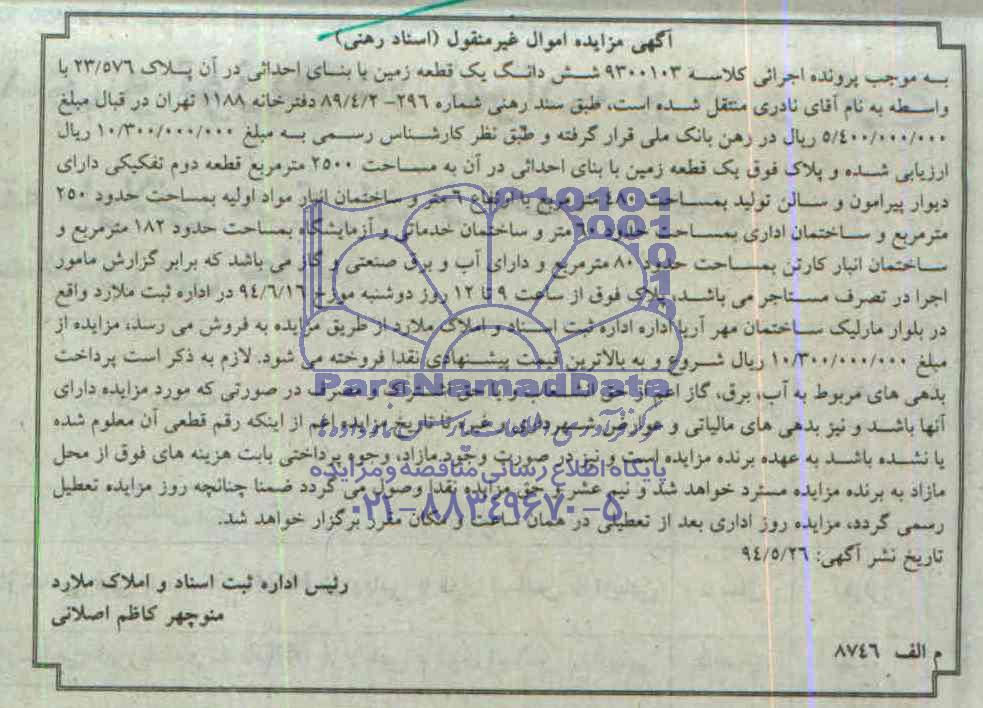 آگهی مزایده اموال غیرمنقول (اسناد رهنی)
به موجب پرونده اجرائی کلاسه ۹۳۰۰۱۰۳ شش دانگ یک قطعه زمین با بنای احداثی در آن پلاک ۲۳/۵۷۶ با
واسطه به نام آقای نادری منتقل شده است، طبق سند رهنی شماره ۲۹۶- ۸۹/٤/۲ دفترخانه ۱۱۸۸ تهران در قبال مبلغ
۵/٤۰۰/۰۰۰/۰۰۰ ریال در رهن بانک ملی قرار گرفته و طبق نظر کارشناس رسمی به مبلغ ۱۰/۳۰۰/۰۰۰/۰۰۰ ریال
ارزیابی شده و پلاک فوق یک قطعه زمین با بنای احداثی در آن به مساحت ۲۵۰۰ مترمربع قطعه دوم تفکیکی دارای
دیوار پیرامون و سالن تولید بمساحت ٤۸۰ متر مربع با ارتفاع ٦ متر و ساختمان انبار مواد اولیه بمساحت حدود ۲۵۰
مترمربع و ساختمان اداری بمساحت حدود ٦۰ متر و ساختمان خدماتی و آزمایشگاه بمساحت حدود ۱۸۲ مترمربع و
ساختمان انبار کارتن بمساحت حدود ۸۰ مترمربع و دارای آب و برق صنعتی و گاز می باشد که برابر گزارش مامور
اجرا در تصرف مستاجر می باشد، پلاک فوق از ساعت ۹ تا ۱۲ روز دوشنبه مورخ ۹٤/٦/۱٦ در اداره ثبت ملارد واقع
در بلوار مارلیک ساختمان مهر آریا اداره اداره ثبت اسناد و املاک ملارد از طریق مزایده به فروش می رسد، مزایده از
مبلغ ۱۰/۳۰۰/۰۰۰/۰۰۰ ریال شروع و به بالاترین قیمت پیشنهادی نقدا فروخته می شود. لازم به ذکر است پرداخت
بدهی های مربوط به آب، برق، گاز اعم از حق انشعاب و یا حق اشتراک و مصرف در صورتی که مورد مزایده دارای
آنها باشد و نیز بدهی های مالیاتی و عوارض شهرداری و غیره تا تاریخ مزایده اعم از اینکه رقم قطعی آن معلوم شده
یا نشده باشد به عهده برنده مزایده است و نیز در صورت وجود مازاد، وجوه پرداختی بابت هزینه های فوق از محل
مازاد به برنده مزایده مسترد خواهد شد و نیم عشر و حق مزایده نقدا وصول می گردد ضمنا چنانچه روز مزایده تعطیل
رسمی گردد، مزایده روز اداری بعد از تعطیلی در همان ساعت و مکان مقرر برگزار خواهد شد.
تاریخ نشر آگهی: ۹٤/۵/۲٦
رئیس اداره ثبت اسناد و املاک ملارد
منوچهر کاظم اصلانی
م الف ۸۷٤٦
ParsNamadData
پایگاه اطلاع رسانی مناقصه و مزایده
۰۲۱-۸۸۳۴۹۶۷۰-۵